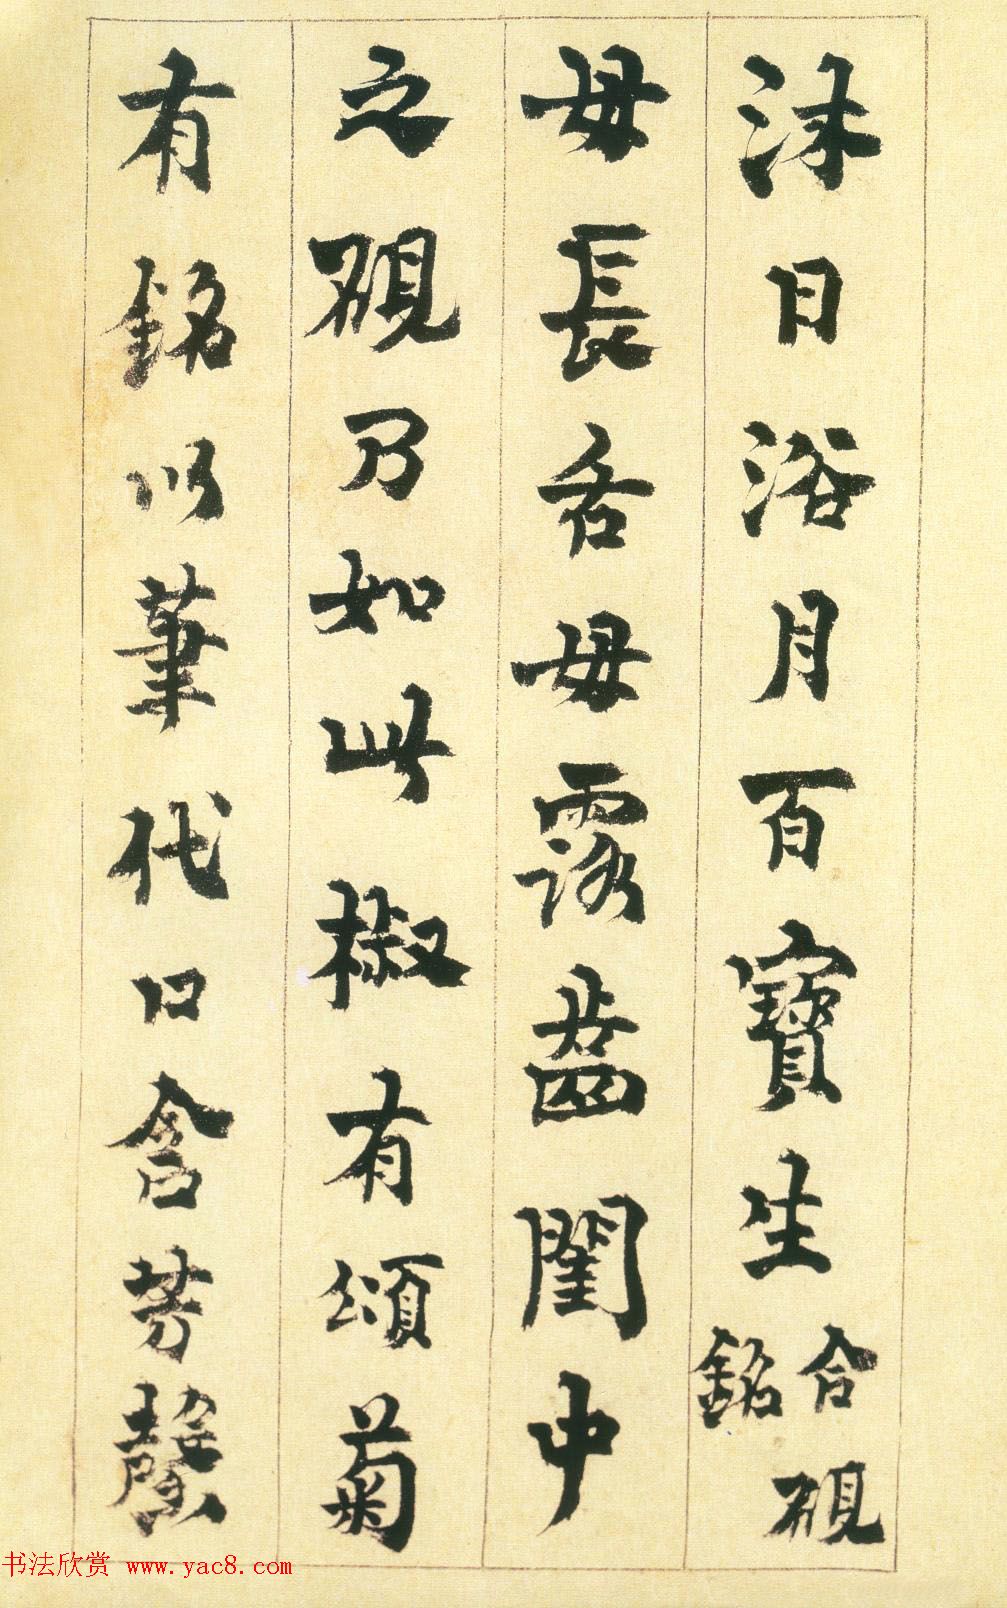 沐日浴月百寶生合硯銘
毋長舌毋露齒閨中
之硯乃如此椒有頌菊
有銘以筆代口含芳馨
书法欣赏 www.yac8.com